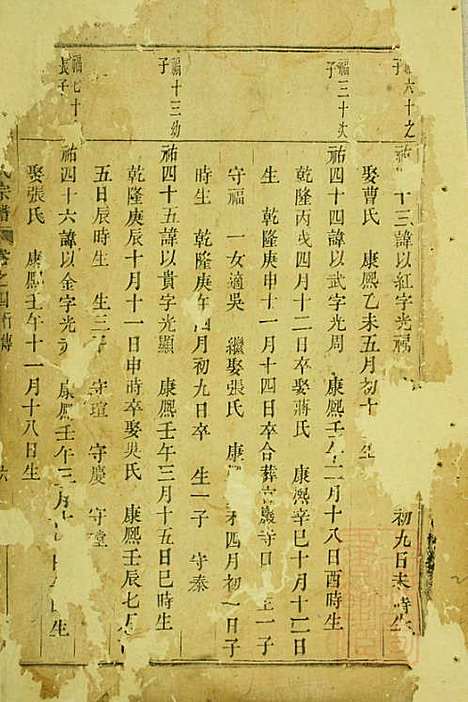 六十之子
祐 十三諱以紅字光福 初九日未時生
娶曹氏 康熈乙未五月初十 生
福三十次子
祐四十四諱以武字光周 康熈壬午二月十八日酉時生
乾隆丙戌四月十二日卒娶蔣氏 康熈辛巳十月十二日
生 乾隆庚申十一月十四日卒合葬 生一子
守福 一女適吳 繼娶張氏 康 四月初一日子
時生 乾隆庚午四月初九日卒 生一子 守泰
福十三幼子
祐四十五諱以貴字光顯 康熈壬午三月十五日巳時生
乾隆庚辰十月十一日申時卒娶吳氏 康熈壬辰七月
五日辰時生 生三子 守瑄 守慶 守堂
福七十 長子
祐四十六諱以金字光 康熈壬午三月 生
娶張氏 康熈壬午十一月十八日生
氏宗譜 卷之四 傳 六